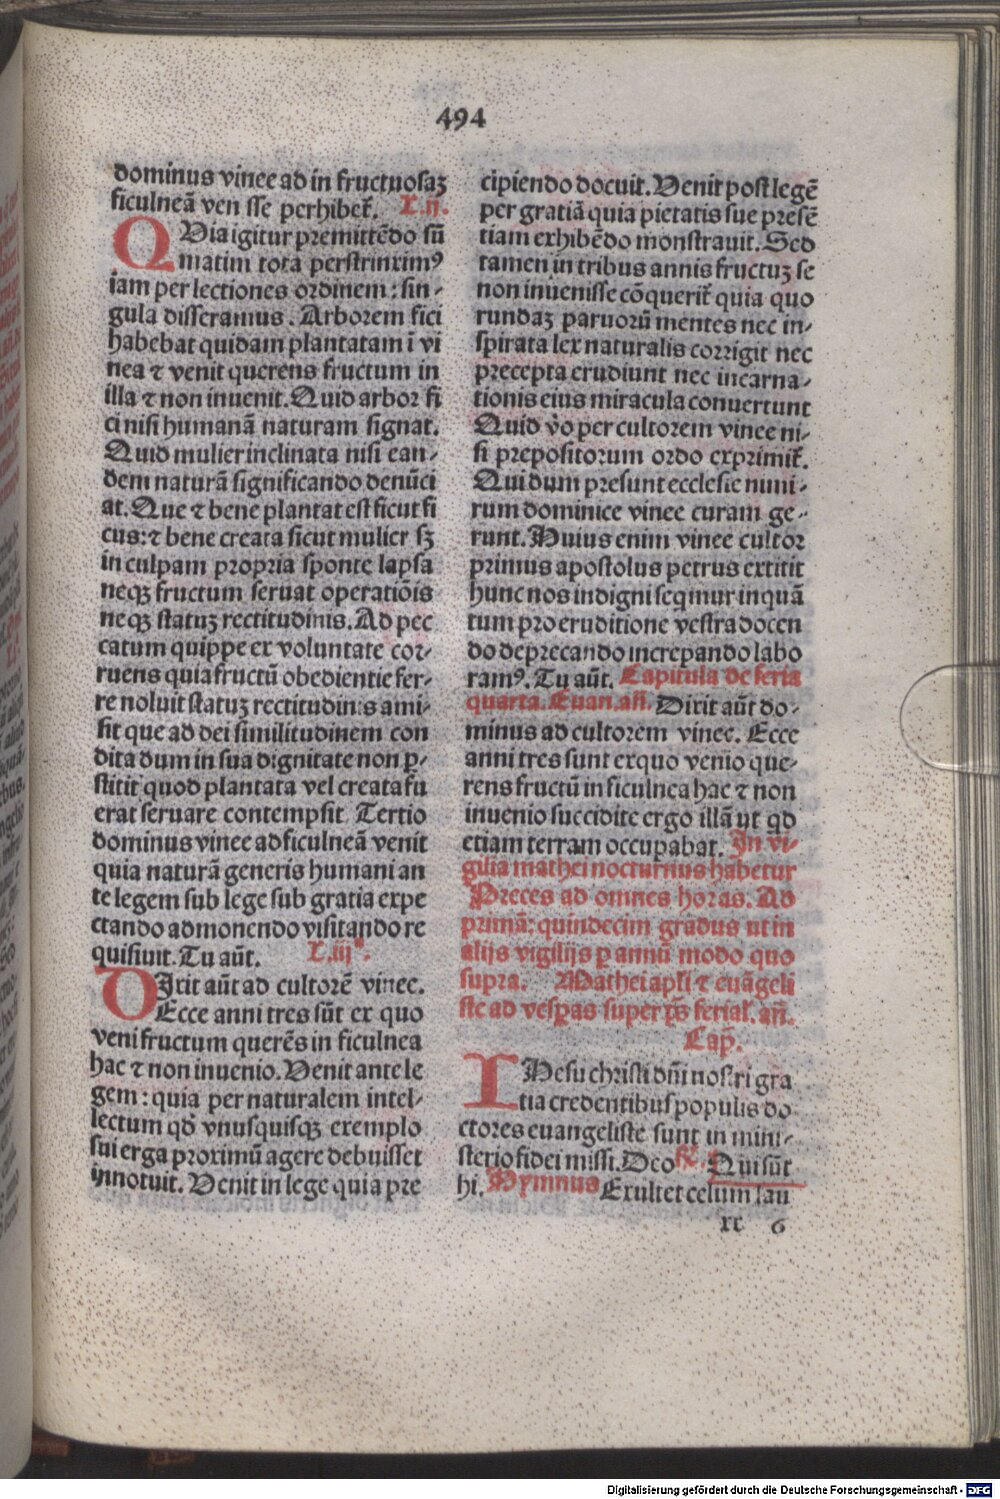 494
dominus vinee ad in fructuosaʒ
ficulneā ven sse perhibet̄. L.ij.
QVia igitur premittēdo sū
matim tota perstrinxim⁹
iam per lectiones ordinem: sin-
gula disseramus. Arborem fici
habebat quidam plantatam ī vi
nea ⁊ venit querens fructum in
illa ⁊ non inuenit. Quid arbor fi
ci nisi humanā naturam signat.
Quid mulier inclinata nisi ean-
dem naturā significando denūci
at. Que ⁊ bene plantat est sicut fi
cus: ⁊ bene creata sicut mulier sʒ
in culpam propria sponte lapsa
neqʒ fructum seruat operatiōis
neqʒ statuʒ rectitudinis. Ad pec
catum quippe ex voluntate cor-
ruens quia fructū obedientie fer-
re noluit statuʒ rectitudinis ami-
sit que ad dei similitudinem con
dita dum in sua dignitate non ꝑ-
stitit quod plantata vel creata fu
erat seruare contempsit. Tertio
dominus vinee ad ficulneā venit
quia naturā generis humani an
te legem sub lege sub gratia expe
ctando admonendo visitando re
quisiuit. Tu aūt. L.iij.
DIxit aūt ad cultorē vinee.
Ecce anni tres sūt ex quo
veni fructum querēs in ficulnea
hac ⁊ non inuenio. Venit ante le
gem: quia per naturalem intel-
lectum qd̄ vnusquisqʒ exemplo
sui erga proximū agere debuisset
innotuit. Venit in lege quia pre
cipiendo docuit. Venit post legē
per gratiā quia pietatis sue presē
tiam exhibēdo monstrauit. Sed
tamen in tribus annis fructuʒ se
non inuenisse cōquerit̄ quia quo
rundaʒ paruorū mentes nec in-
spirata lex naturalis corrigit nec
precepta erudiunt nec incarna-
tionis eius miracula conuertunt
Quid v̊o per cultorem vinee ni-
si prepositorum ordo exprimit̄.
Qui dum presunt ecclesie nimi-
rum dominice vinee curam ge-
runt. Huius enim vinee cultor
primus apostolus petrus extitit
hunc nos indigni seqmur in quā
tum pro eruditione vestra docen
do deprecando increpando labo
ram⁹. Tu aūt. Capitula de feria
quarta. Euan. an̄. Dixit aūt do-
minus ad cultorem vinee. Ecce
anni tres sunt ex quo venio que-
rens fructū in ficulnea hac ⁊ non
inuenio succidite ergo illā ut qd
etiam terram occupabat. In vi-
gilia mathei nocturnus habetur
Preces ad omnes horas. Ad
primā: quindecim gradus ut in
alijs vigilijs ꝑ annū modo quo
supra. Mathei apl̄i ⁊ euāgeli
ste ad vesꝑas super p̄s ferial̄. an̄.
Cap̄.
IHesu christi dn̄i nostri gra
tia credentibus populis do
ctores euangeliste sunt in mini-
sterio fidei missi. Deo R̄. Qui sūt
hi. Hymnus Exultet celum lau
xx 6
Digitalisierung gefördert durch die Deutsche Forschungsgemeinschaft - DFG